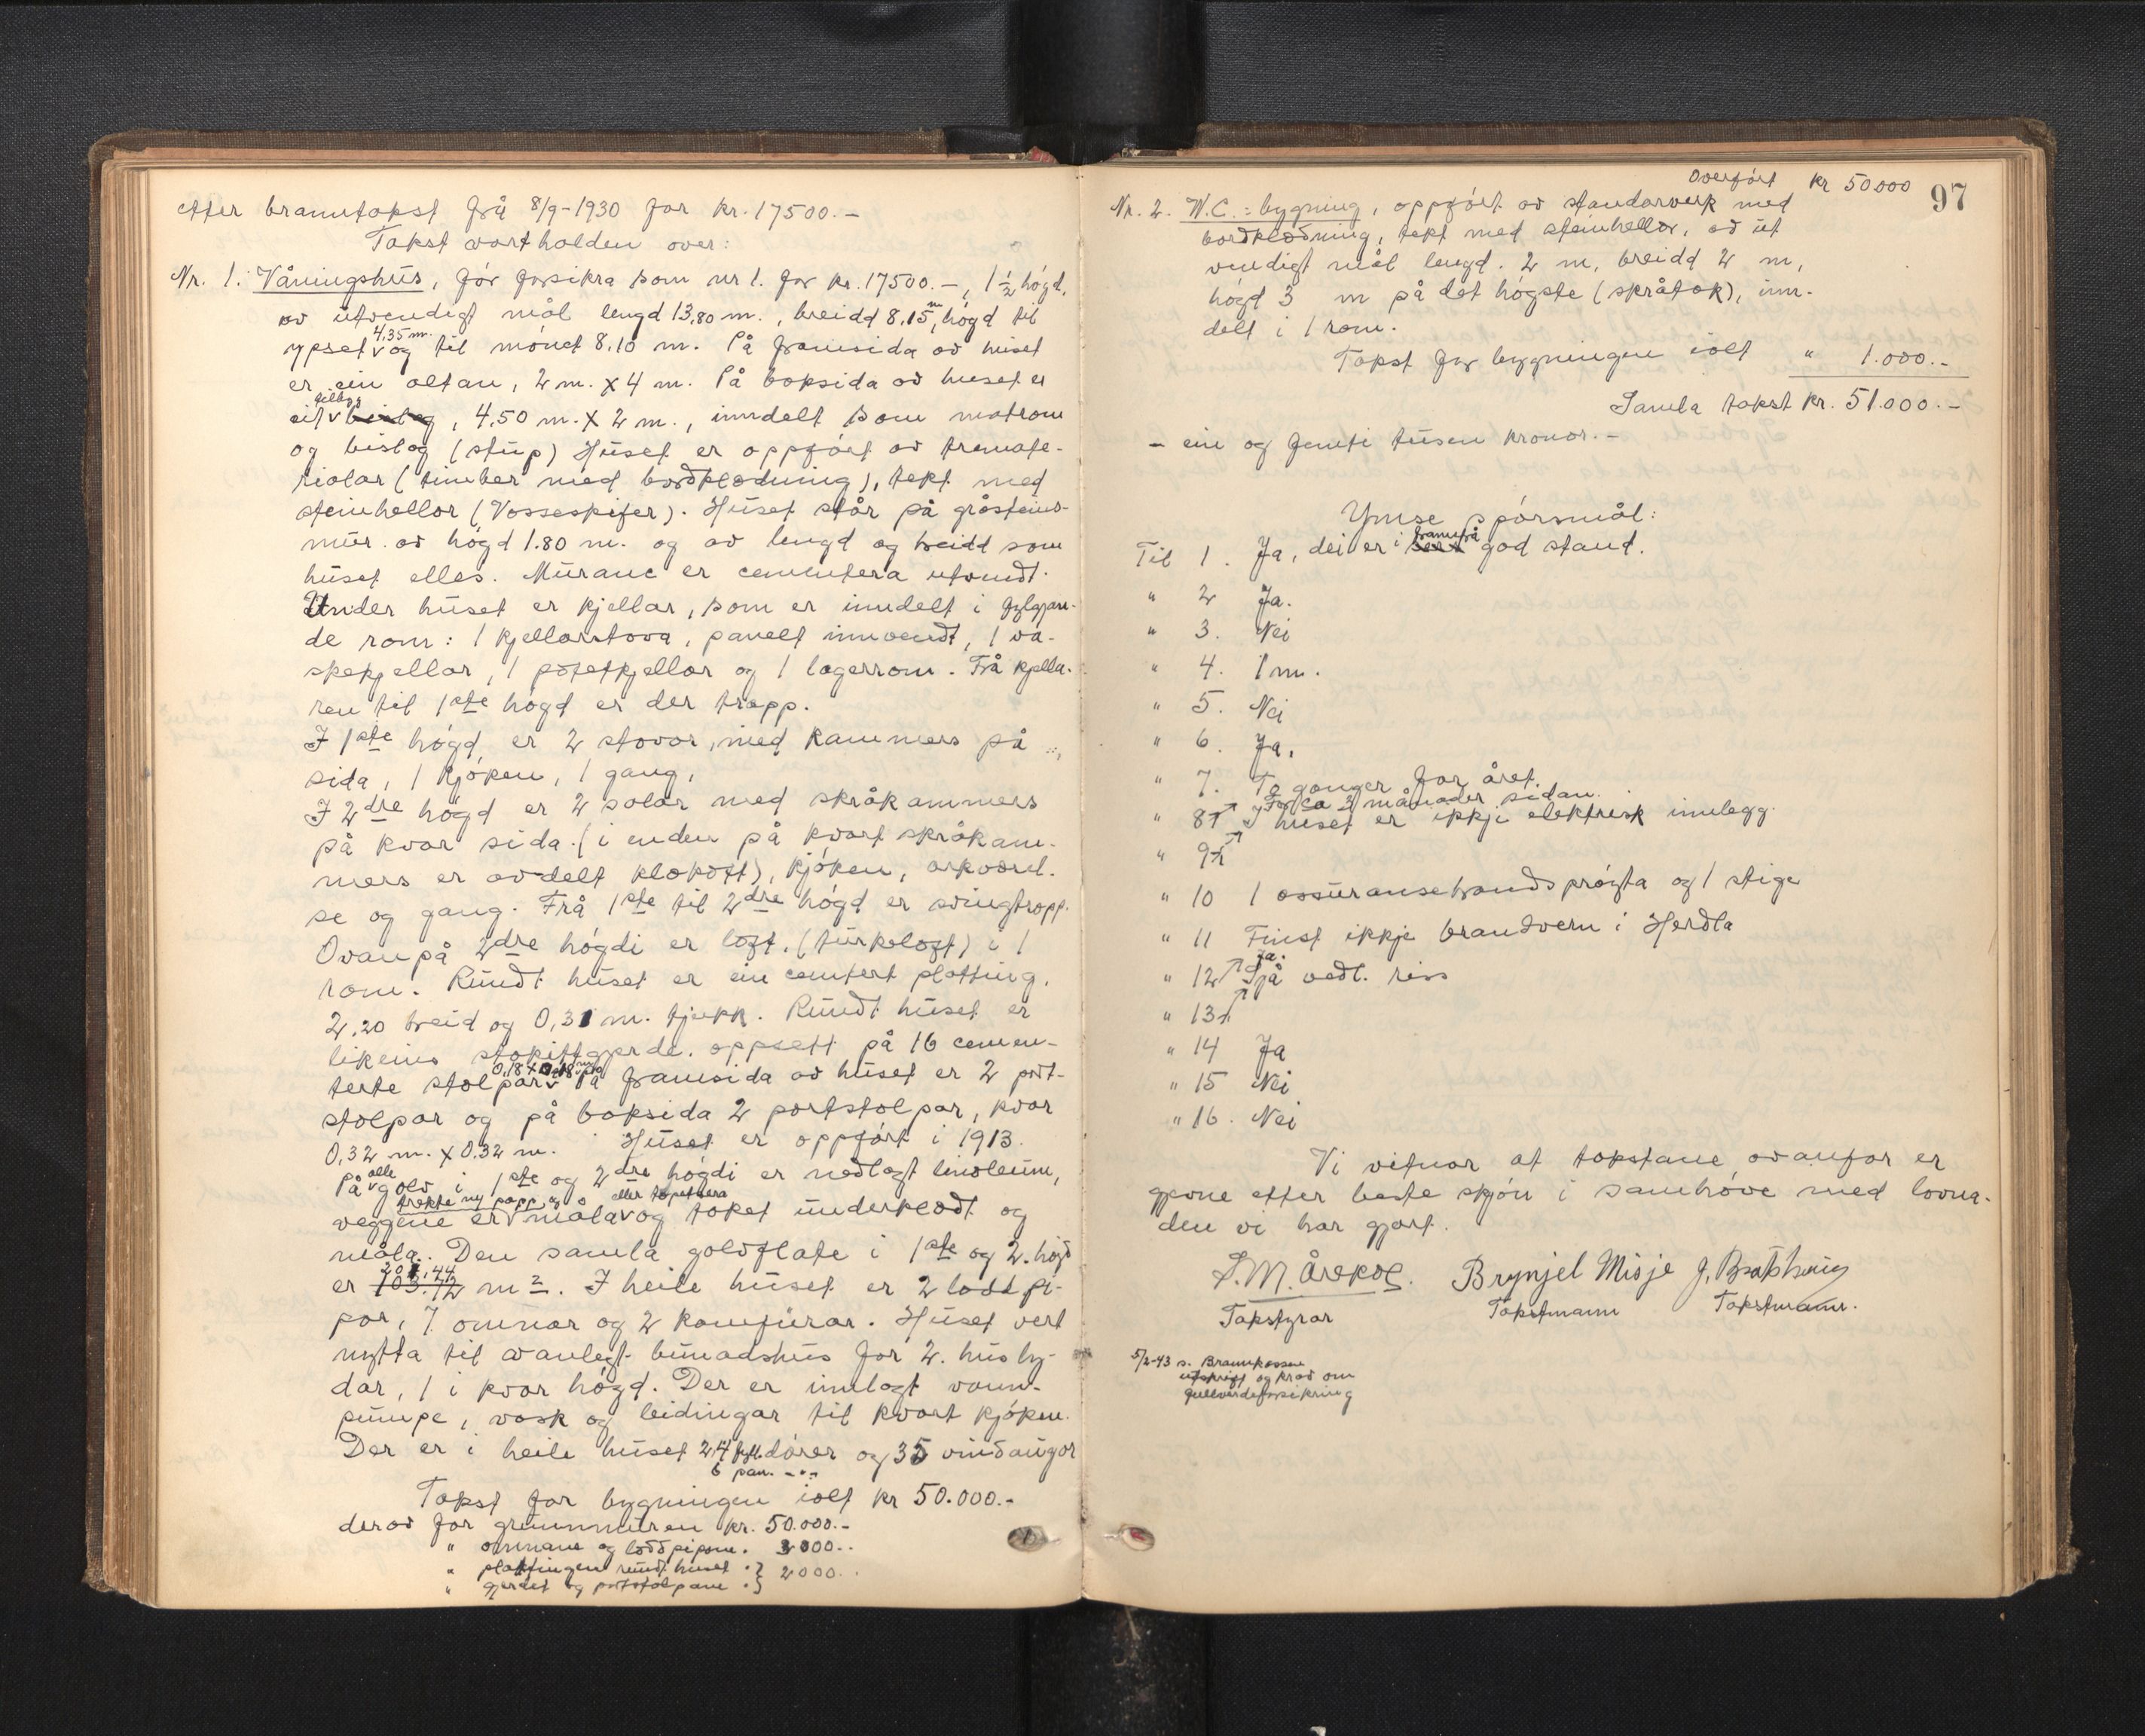 etter branntakst frå 8/9-1930 for kr. 17500.-
Takst vart holden over:
Nr. 1. Våningshus, før forsikra som nr 1. for kr. 17500.-, 1 1/2 høgd,
av utvendigt mål lengd 13,80 m., breidd 8,15 m, høgd til
4,35 m.
ypset og til mønet 8,10 m. På framsida av huset
er ein altan, 2 m. x 4 m. På baksida av huset er
tilbygg
eit bislag, 4,50 m. x 2 m., inndelt som matrom
og bislag (stup) Huset er oppført av tremate-
rialar (timber med bordklædning), tekt med
steinhellor (Vosseskifer). Huset står på gråsteins-
mur av høgd 1.80 m. og av lengd og breidd som
huset elles. Murane er cementera utvendt.
Under huset er kjellar, som er inndelt i fylgjan-
de rom: 1 kjellarstova, panelt innvendt, 1 va-
skekjellar, 1 potetkjellar og 1 lagerrom. Frå kjella-
ren til 1ste høgd er der trapp.
I 1ste høgd er 2 stovor, med kammers på
sida, 1 kjøken, 1 gang,
I 2dre høgd er 2 salar med skråkammers
på kvar sida (i enden på kvart skråkam-
mers er avdelt klokott), kjøken, arkværel-
se og gang. Frå 1ste til 2dre høgd er svingtrapp.
Ovanpå 2dre høgdi er loft. (turkeloft) i 1
rom. Rundt huset er ein cemtert platting,
2.20 breid og 0,31 m. tjukk. Rundt huset er
likeins stakittgjerde, oppsett på 16 cemen-
0,18 x 0,18 m
terte stolpar På framsida av huset er 2 port-
stolpar og på baksida 2 portstolpar, kvar
0,32 m. x 0.32 m. Huset er oppført i 1913.
alle
På golv i 1ste og 2dre høgdi er nedlagt linoleum,
trekte ny papp og eller tapetsera
veggene er måla og taket underklædt og
måla. Den samla golvflate i 1ste og 2. høgd
201,44
er 103.72 m2. I heile huset er 2 loddpi-
par, 7 omnar og 2 komfurar. Huset vert
nytta til vanlegt bunadshus for 2. husly-
dar, 1 i kvar høgd. Der er innlagt vann-
pumpe, vask og leidingar til kvart kjøken.
Der er i heile huset 24 fyll. dører og 35 vindaugor
6 pan. -"-
Takst for bygningen ialt kr 50.000.-
derav for grunnmuren kr. 50.000.-
" omnane og loddpipone. 3000..
" plattingen rundt huset . } 2000..
" gjerdet og portstolpane . }
Overført kr 50000
97
Nr. 2. W.C.:bygning, oppført av standarverk med
bordklædning, tekt med steinhellor, av ut
vendigt mål lengd. 2 m, breidd 2 m,
høgd 3 m på det høgste (skråtak), inn-
delt i 1 rom.
Takst for bygningen ialt " 1.000.-
Samla takst kr. 51.000.-
- ein og femti tusen kronor.-
Ymse spørsmål:
framifrå
Til 1. Ja, dei er i god stand.
" 2 Ja.
" 3. Nei
" 4. 1 m.
" 5. Nei
" 6. Ja.
" 7. To gonger for året.
For ca 2 månader sidan.
" 8 I huset er ikkje elektrisk innlegg.
" 9
" 10 1 assuransebrandsprøyta og 1 stige
" 11 Finst ikkje brandvern i Herdla
Ja.
" 12 Sjå vedl. riss
" 13
" 14 Ja
" 15 Nei
" 16. Nei
Vi vitnar at takstane ovanfor er
gjevne etter beste skjøn i samhøve med lovna-
den vi har gjort.
Brynjel Misje
Takstyrar Takstmann Takstmann.
5/2-43 s. Brannkassen
utskrift og krav om
gullverdeforsikring